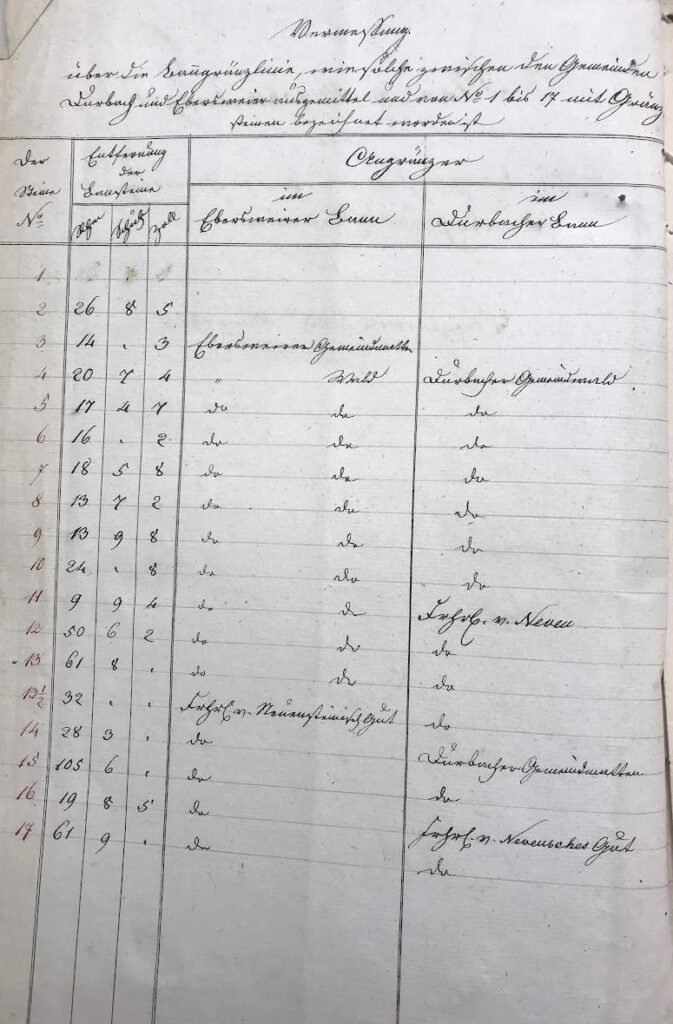 Vermessung
über die Banngränzlinie, wie solche zwischen den Gemeinden
Durbach und Ebersweier ausgemittel und von No 1 bis 17 mit Gränz
steinen bezeichnet worden ist
Der Steine No
Entfernung der Bannsteine
Angränzer
Schuh Zoll
im Ebersweirer Bann
im Durbacher Bann
1 . . .
2 26 8 5
3 14 . 3 Ebersweirer Gemeindmatten
4 20 7 4 " Wald Durbacher Gemeindwald
5 17 4 7 do do do
6 16 . 2 do do do
7 18 5 8 do do do
8 13 7 2 do do do
9 13 9 8 do do do
10 24 . 8 do do do
11 9 9 4 do do Frhrl. v. Neven
12 50 6 2 do do do
13 61 8 . do do do
13½ 32 . . Frhrl. v. Neuensteinisch Gut do
14 28 3 . do
15 105 6 . do Durbacher Gemeindmatten
16 19 8 5 do do
17 61 9 . do Frhrl. v. Nevensches Gut
do